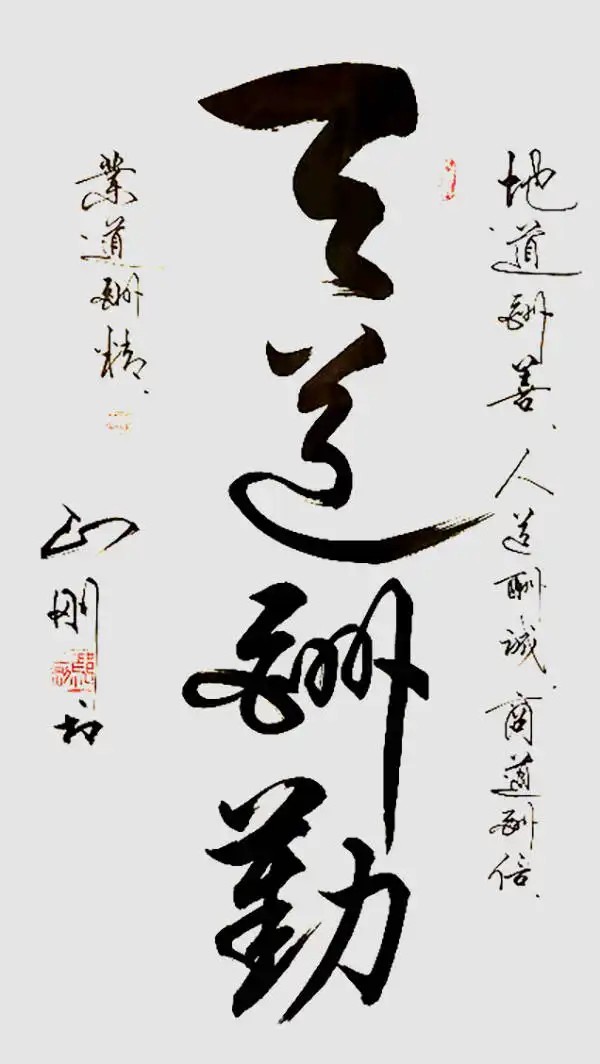 天道酬勤
地道酬善、人道酬诚、商道酬信、
業道酬精、
山刚